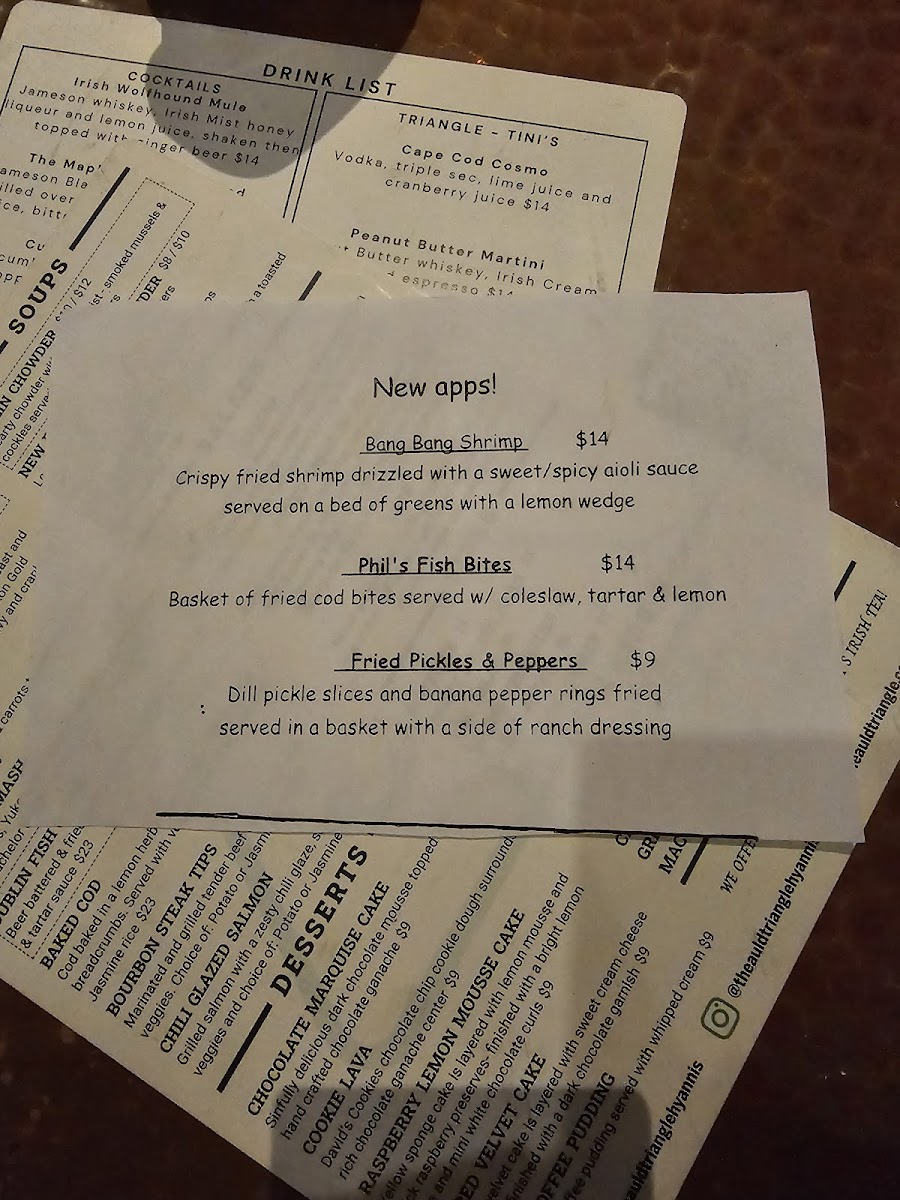 DRINK LIST
COCKTAILS
Irish Wolfhound Mule
Jameson whiskey, Irish Mist honey
liqueur and lemon juice, shaken then
topped with ginger beer $14
The
TRIANGLE - TINI'S
Cape Cod Cosmo
Vodka, triple sec, lime juice and
cranberry juice $14
Peanut Butter Martini
Butter whiskey, Irish Cream
espresso $14
SOUPS
CHOWDER
smoked mussels &
$8 / $10
a toasted
New apps!
Bang Bang Shrimp $14
Crispy fried shrimp drizzled with a sweet/spicy aioli sauce
served on a bed of greens with a lemon wedge
Phil's Fish Bites $14
Basket of fried cod bites served w/ coleslaw, tartar & lemon
Fried Pickles & Peppers $9
Dill pickle slices and banana pepper rings fried
served in a basket with a side of ranch dressing
DUBLIN FISH
Beer battered &
& tartar sauce $23
BAKED COD
Cod baked in a lemon herb
breadcrumbs. Served with
Jasmine rice $23
BOURBON STEAK TIPS
Marinated and grilled tender beef
veggies. Choice of: Potato or
CHILI GLAZED SALMON
Grilled salmon with a zesty chili glaze,
veggies and choice of: Potato or Jasmine
DESSERTS
CHOCOLATE MARQUISE CAKE
Sinfully delicious dark chocolate mousse topped
hand crafted chocolate ganache $9
COOKIE LAVA
David's Cookies chocolate chip cookie dough
rich chocolate ganache center $9
RASPBERRY LEMON MOUSSE CAKE
sponge cake is layered with lemon mousse and
raspberry preserves- finished with a bright lemon
and mini white chocolate curls $9
VELVET CAKE
velvet cake is layered with sweet cream cheese
with a dark chocolate garnish $9
PUDDING
pudding served with whipped cream $9
WE
IRISH TEA!
@theauldtrianglehyannis